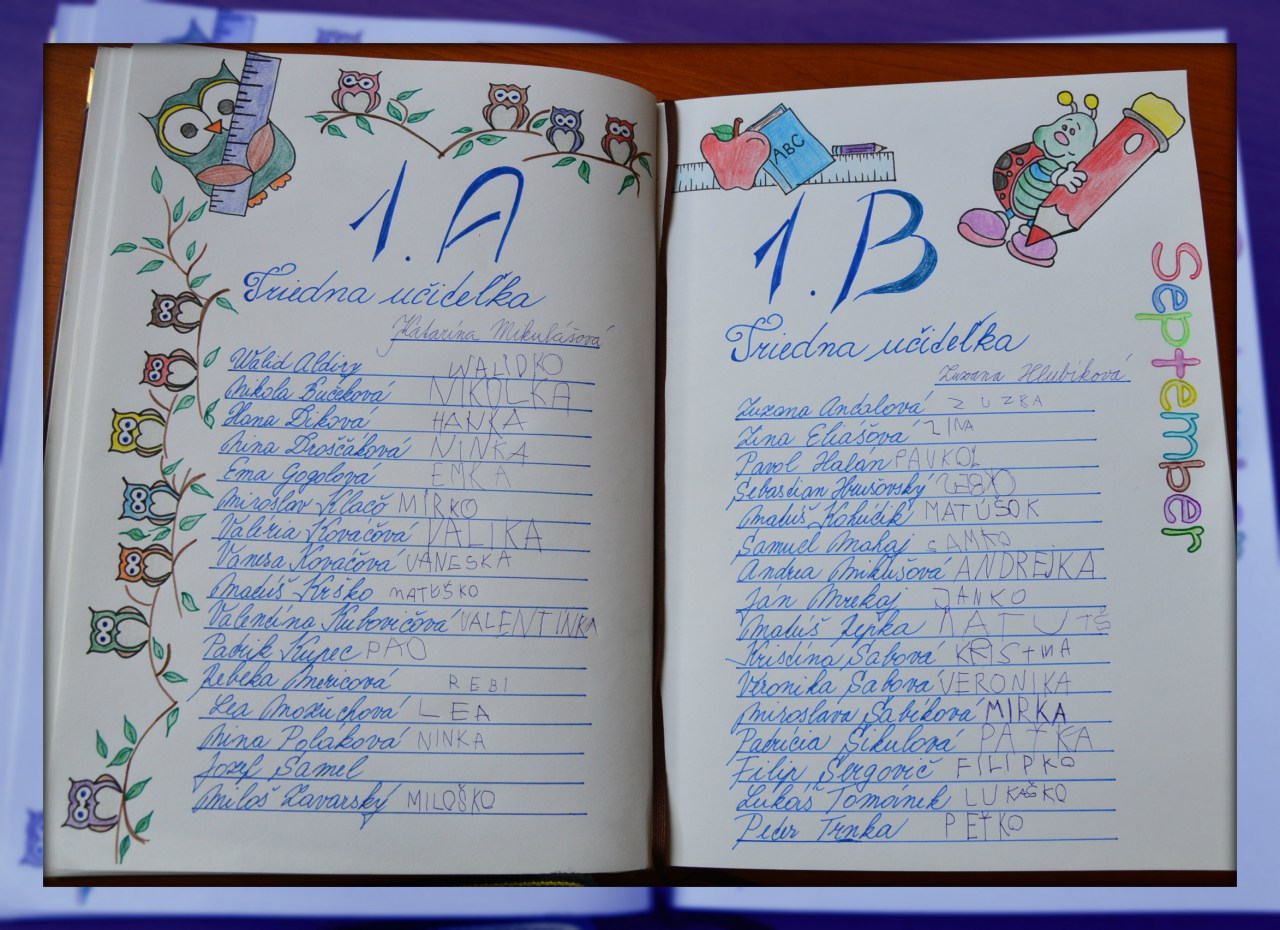 1. A
Triedna učiteľka
Katarína Mikulášová
Walid Aldiry WALIDKO
Nikola Bučeková NIKOLKA
Hana Diková HANKA
Nina Droščáková NINKA
Ema Gogolová EMKA
Miroslav Klačo MIRKO
Valéria Kováčová VALIKA
Vanesa Kováčová VANESKA
Matúš Krško MATÚŠKO
Valentína Kubovičová VALENTÍNKA
Patrik Kupec PAŤO
Rebeka Mericová REBI
Lea Možuchová LEA
Nina Poláková NINKA
Jozef Samel
Miloš Zavarský MILOŠKO
ABC
1. B
Triedna učiteľka
Zuzana Hlubíková
Zuzana Andalová ZUZBA
Zina Eliášová ZINA
Pavol Halán PAVKOL
Sebastian Hrušovský SEBKO
Matúš Kohútik MATÚŠOK
Samuel Mahaj SAMKO
Andrea Miklušová ANDREJKA
Ján Mrekaj JANKO
Matúš Repka MATUTŠ
Kristína Sabová KRIStINA
Veronika Sabová VERONIKA
Miroslava Sabíková MIRKA
Patrícia Šikulová PAŤKA
Filip Šergovič FILIPKO
Lukáš Tománek LUKAŠKO
Peter Trnka PEŤKO
September